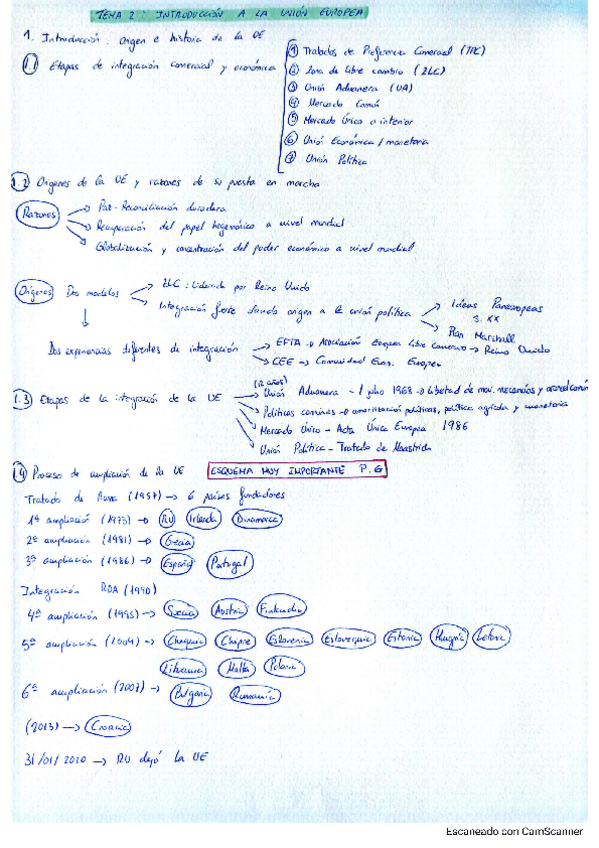 TEMA 2: INTRODUCCIÓN A LA UNIÓN EUROPEA
1. Introducción: Origen e historia de la UE
1.1 Etapas de integración comercial y económica
1 Tratados de Preferencia Comercial (TPC)
2 Zona de libre cambio (ZLC)
3 Unión Aduanera (UA)
4 Mercado Común
5 Mercado Único o interior
6 Unión Económica / monetaria
7 Unión Política
1.2 Orígenes de la UE y razones de su puesta en marcha
Razones → Paz - Reconciliación duradera
→ Recuperación del papel hegemónico a nivel mundial
→ Globalización y concentración del poder económico a nivel mundial
Orígenes Dos modelos → ZLC: Liderada por Reino Unido
→ Integración fuerte dando origen a la unión política → Ideas Paneuropeas s. XX
→ Plan Marshall
Dos experiencias diferentes de integración → EFTA → Asociación Europea Libre Comercio → Reino Unido
→ CEE → Comunidad Econ. Europea
1.3 Etapas de la integración de la UE → (12 años) Unión Aduanera - 1 julio 1968 → libertad de mov. mercancías y arancel común
→ Políticas comunes → armonización políticas, política agrícola y monetaria
→ Mercado Único - Acta Única Europea 1986
→ Unión Política - Tratado de Maastricht
1.4 Proceso de ampliación de la UE ESQUEMA MUY IMPORTANTE P. 6
Tratado de Roma (1957) → 6 países fundadores
1ª ampliación (1973) → RU Irlanda Dinamarca
2ª ampliación (1981) → Grecia
3ª ampliación (1986) → España Portugal
Integración RDA (1990)
4ª ampliación (1995) → Suecia Austria Finlandia
5ª ampliación (2004) → Chequia Chipre Eslovenia Eslovaquia Estonia Hungría Letonia
Lituania Malta Polonia
6ª ampliación (2007) → Bulgaria Rumanía
(2013) → Croacia
31/01/2020 → RU dejó la UE
Escaneado con CamScanner